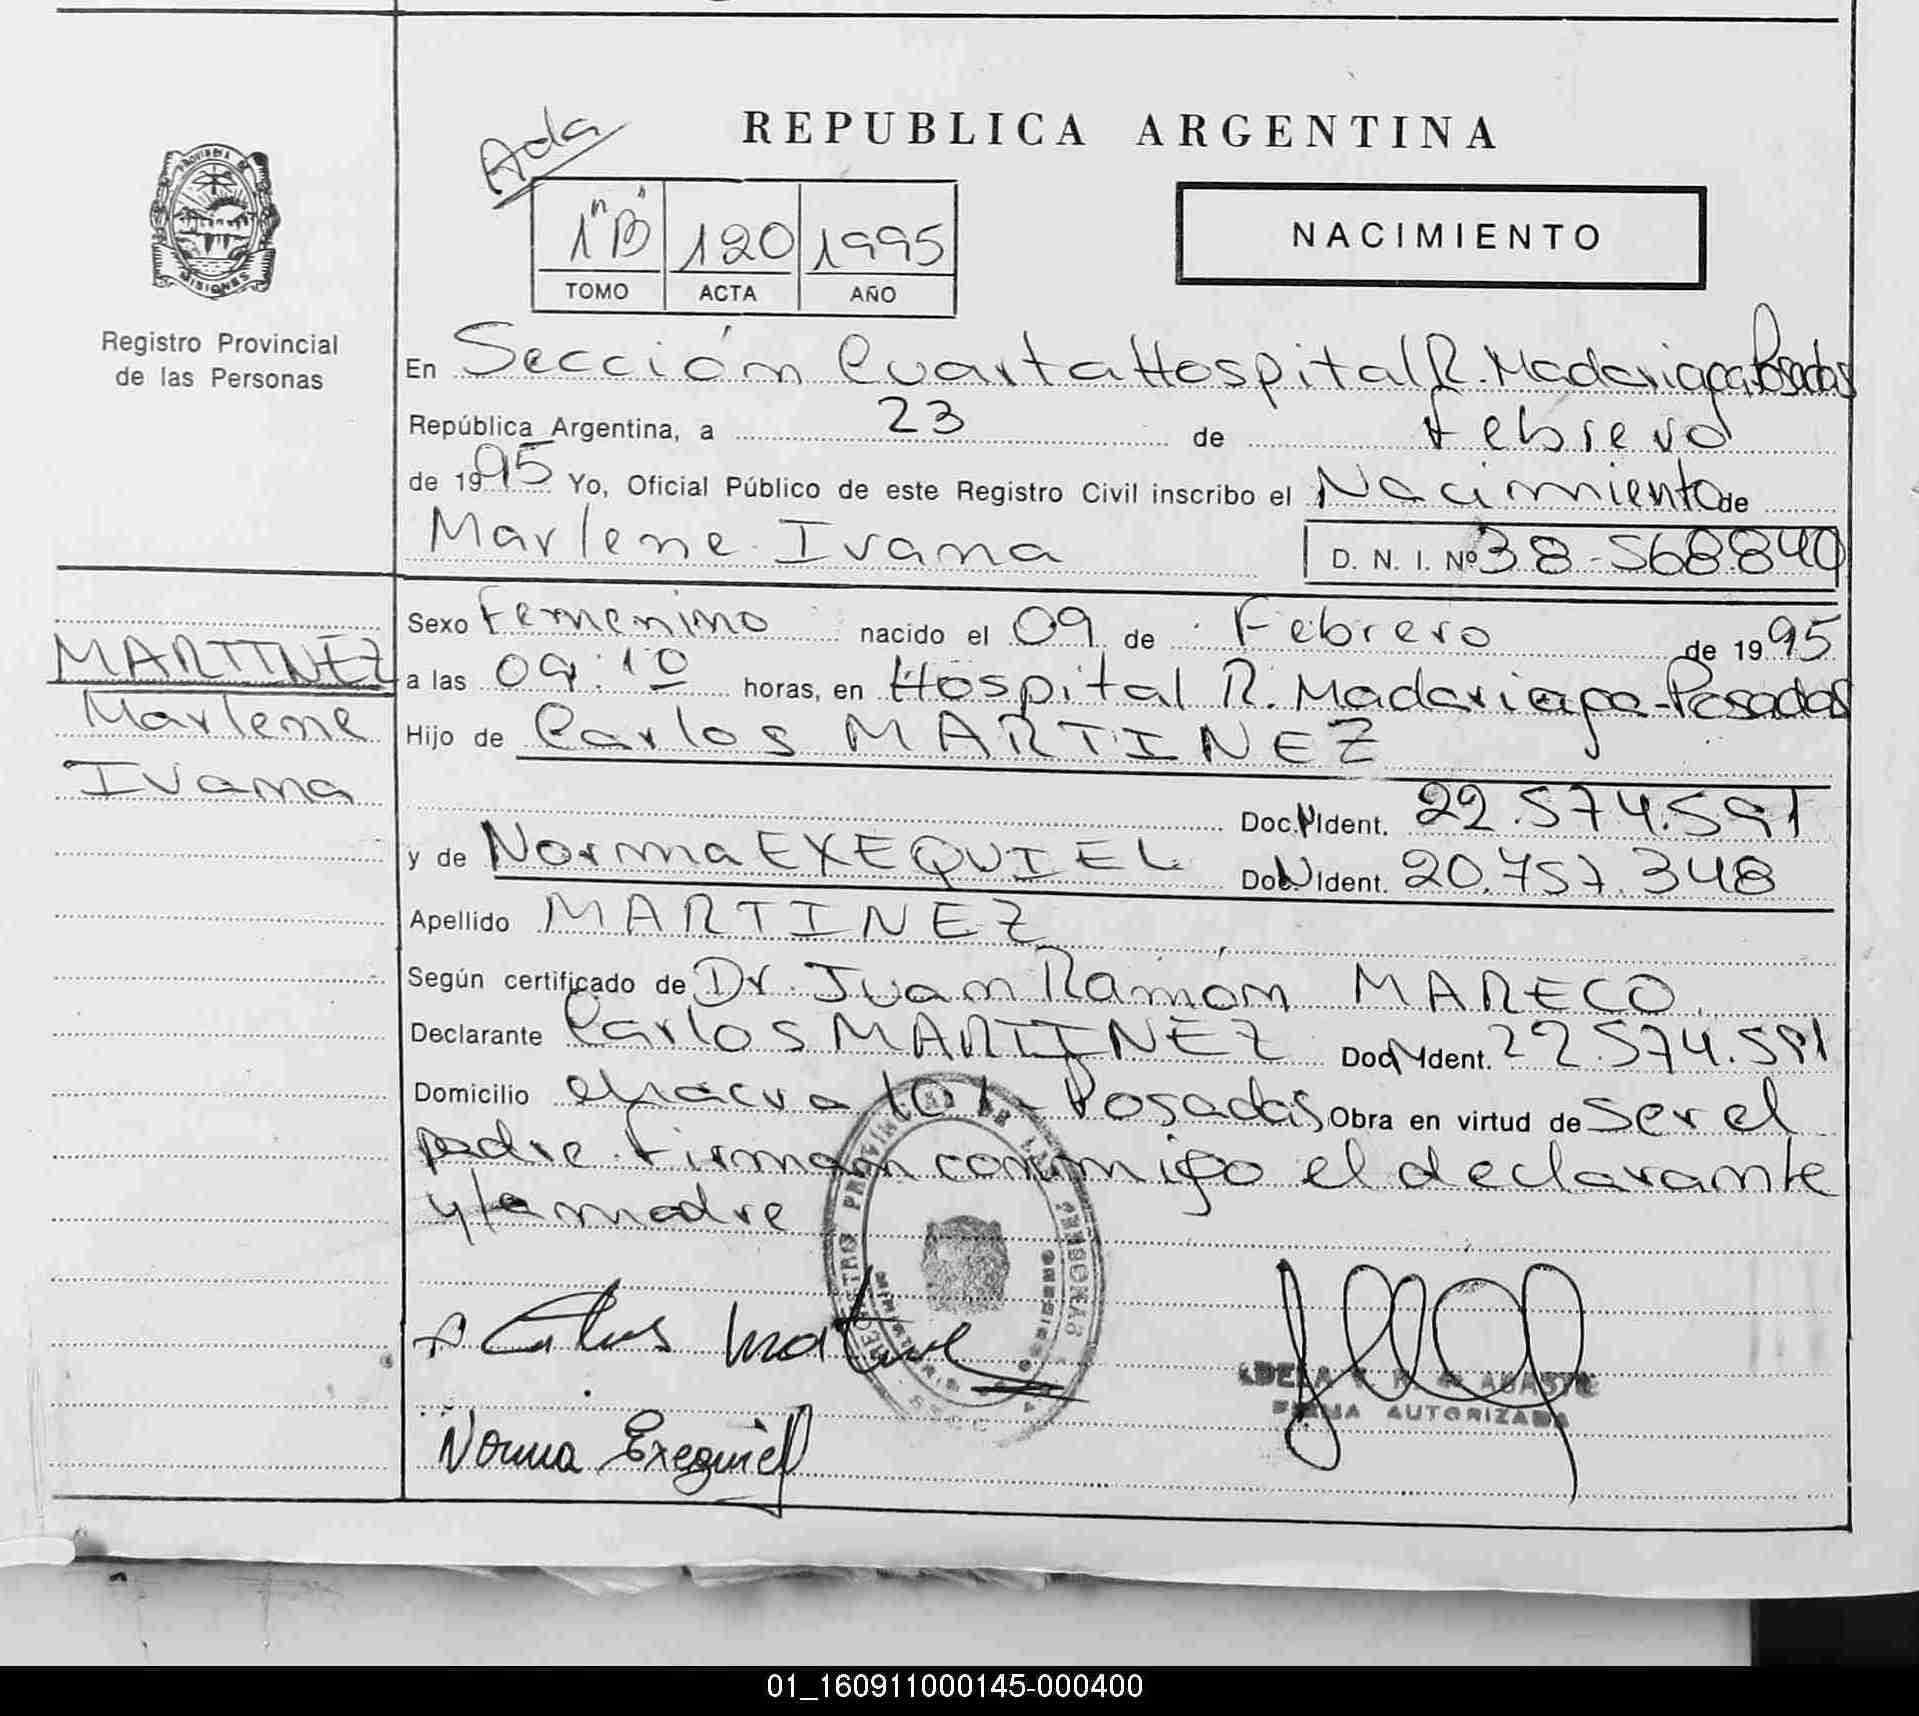 REPUBLICA ARGENTINA
Ada
1 "B" 120 1995
TOMO ACTA AÑO
NACIMIENTO
PROVINCIA DE MISIONES
Registro Provincial
de las Personas
En Sección Cuarta Hospital R. Madariaga, Posadas
República Argentina, a 23 de Febrero
de 1995 Yo, Oficial Público de este Registro Civil inscribo el Nacimiento de
Marlene Ivana D. N. I. Nº 38-568840
MARTINEZ
Marlene
Ivana
Sexo Femenino nacido el 09 de Febrero de 1995
a las 09:10 horas, en Hospital R. Madariaga-Posadas
Hijo de Carlos MARTINEZ
Doc. N Ident. 22.574.591
y de Norma EXEQUIEL Doc. N Ident. 20.757.348
Apellido MARTINEZ
Según certificado de Dr. Juan Ramón MARECO
Declarante Carlos MARTINEZ Doc. N Ident. 22.574.591
Domicilio chacra 101-Posadas Obra en virtud de ser el
padre. Firman conmigo el declarante
y la madre
REGISTRO PROVINCIAL DE LAS PERSONAS
MISIONES
Carlos Martinez
FIRMA AUTORIZADA
Norma Exequiel
01_160911000145-000400